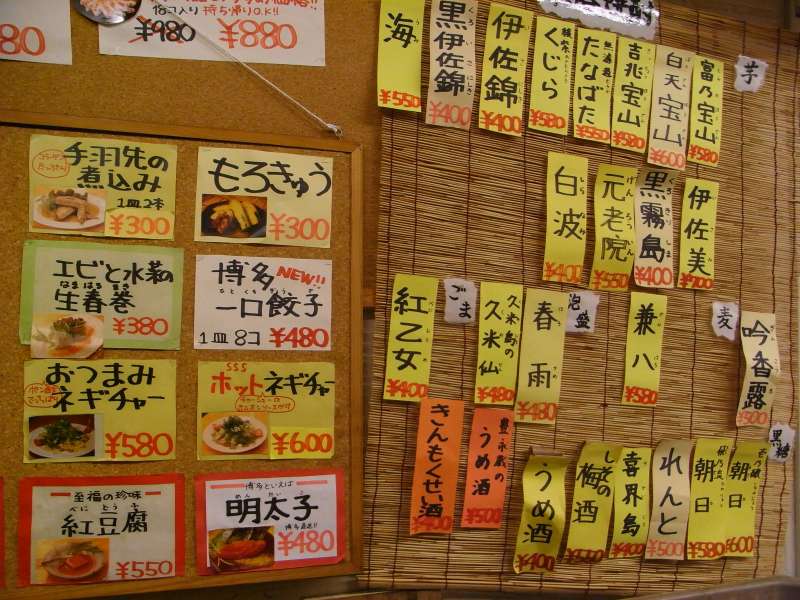 80
18コ入り 持ち帰りOK!!
¥980
¥880
手羽先の
煮込み
1皿2本
¥300
もろきゅう
¥300
エビと水菜の
なまはるまき
生春巻
¥380
博多 NEW!!
ひとくちぎょうざ
一口餃子
1皿8コ ¥480
おつまみ
ネギチャー
¥580
ホットネギチャー
¥600
至福の珍味
べにとうふ
紅豆腐
¥550
博多といえば
めんたいこ
明太子
博多直送!!
¥480
海
¥550
黒伊佐錦
¥400
伊佐錦
¥400
くじら
¥580
たなばた
¥550
吉兆宝山
¥580
白天宝山
¥600
富乃宝山
¥580
芋
白波
¥400
元老院
¥550
黒霧島
¥400
伊佐美
¥700
ごま
紅乙女
¥400
久米島の
久米仙
¥480
春雨
¥480
泡盛
兼八
¥580
麦
吟香露
¥500
黒糖
きんもくせい酒
¥400
豊永蔵の
うめ酒
¥500
うめ酒
¥400
しその
梅酒
¥500
喜界島
¥400
れんと
¥500
朝日
¥580
朝日
¥600